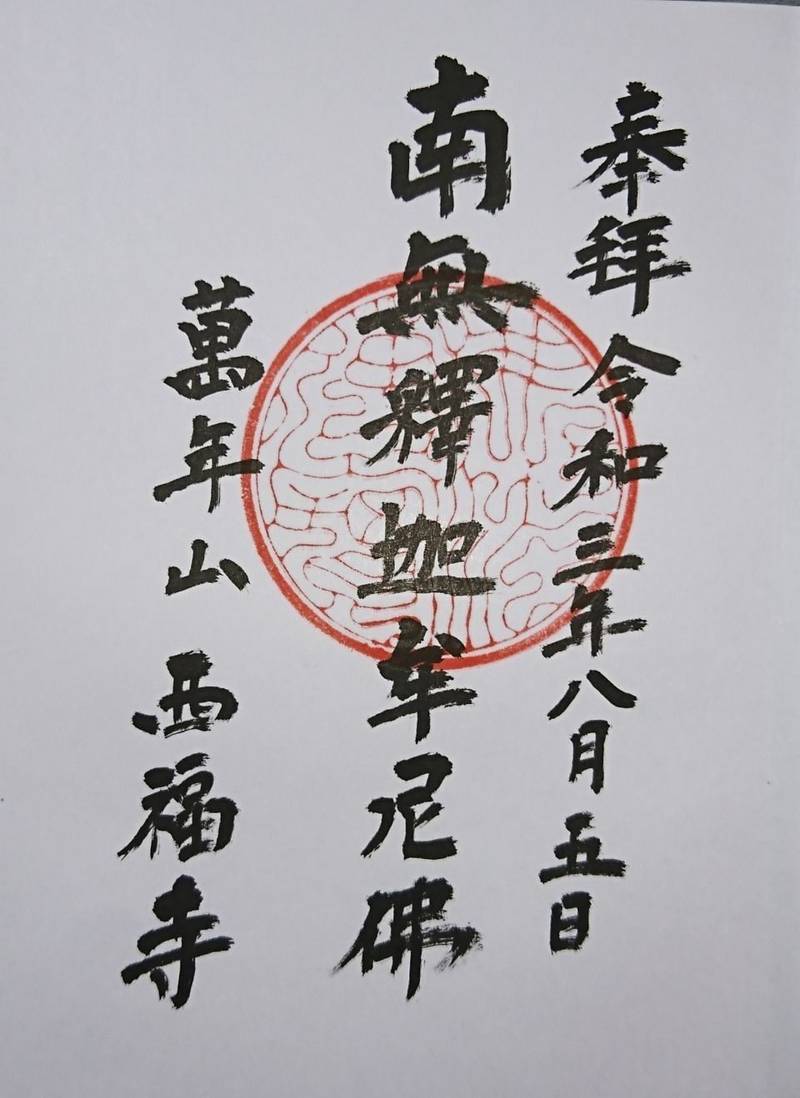 奉拜 令和三年八月五日
南無釋迦牟尼佛
萬年山 西福寺